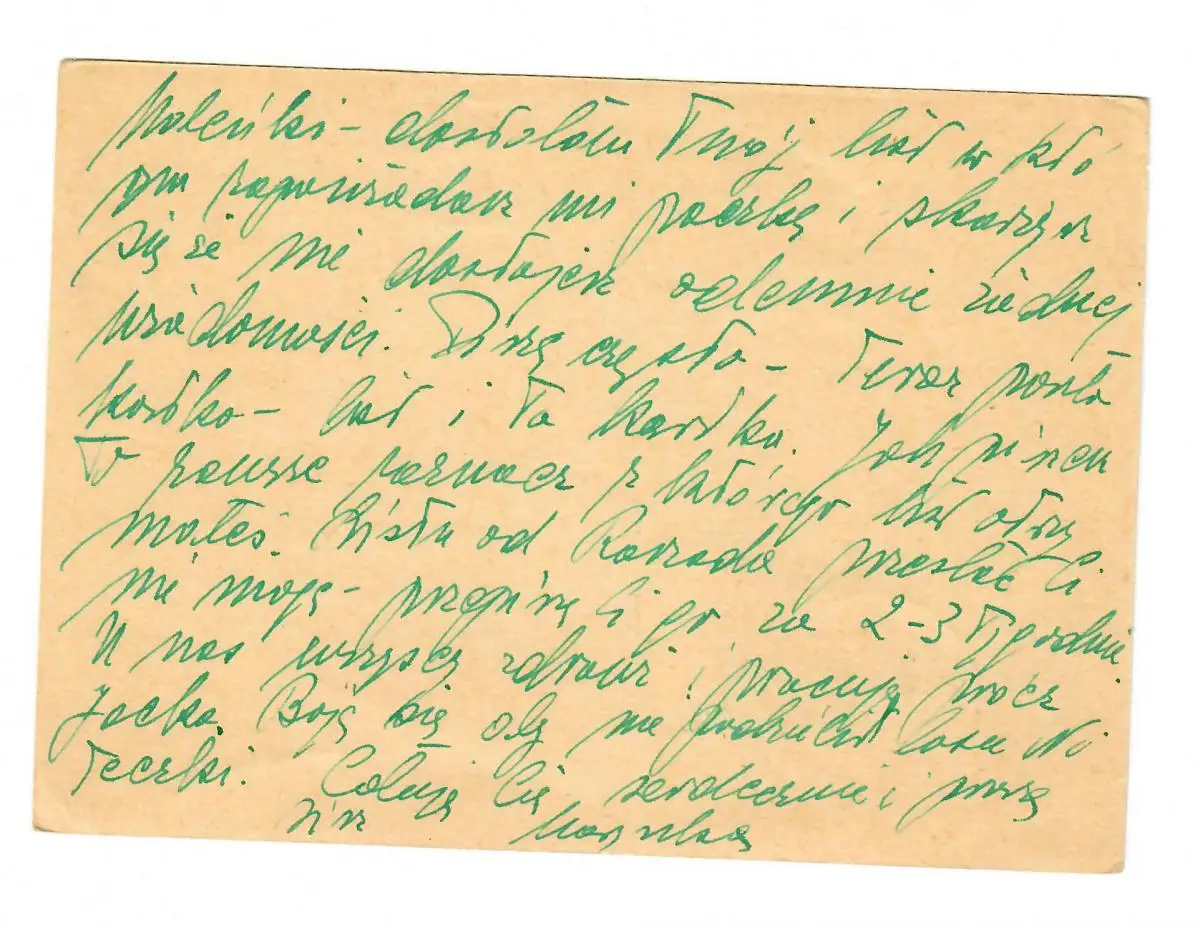 Maleńki – dostałam Twój list w któ
rym zapowiadasz mi paczkę i skarżysz
się że nie dostajesz odemnie żadnej
wiadomości. Piszę często – teraz poszła
kartka – list i ta kartka. Jak piszesz
to zawsze zaznacz z którego list otrzy
małeś. Listu od Konrada przesłać Ci
nie mogę – przepiszę Ci go za 2–3 tygodnie
U nas wszyscy zdrowi i pracują prócz
Jacka. Boję się aby nie podzielił losu
teczki. Całuję Cię serdecznie i proszę